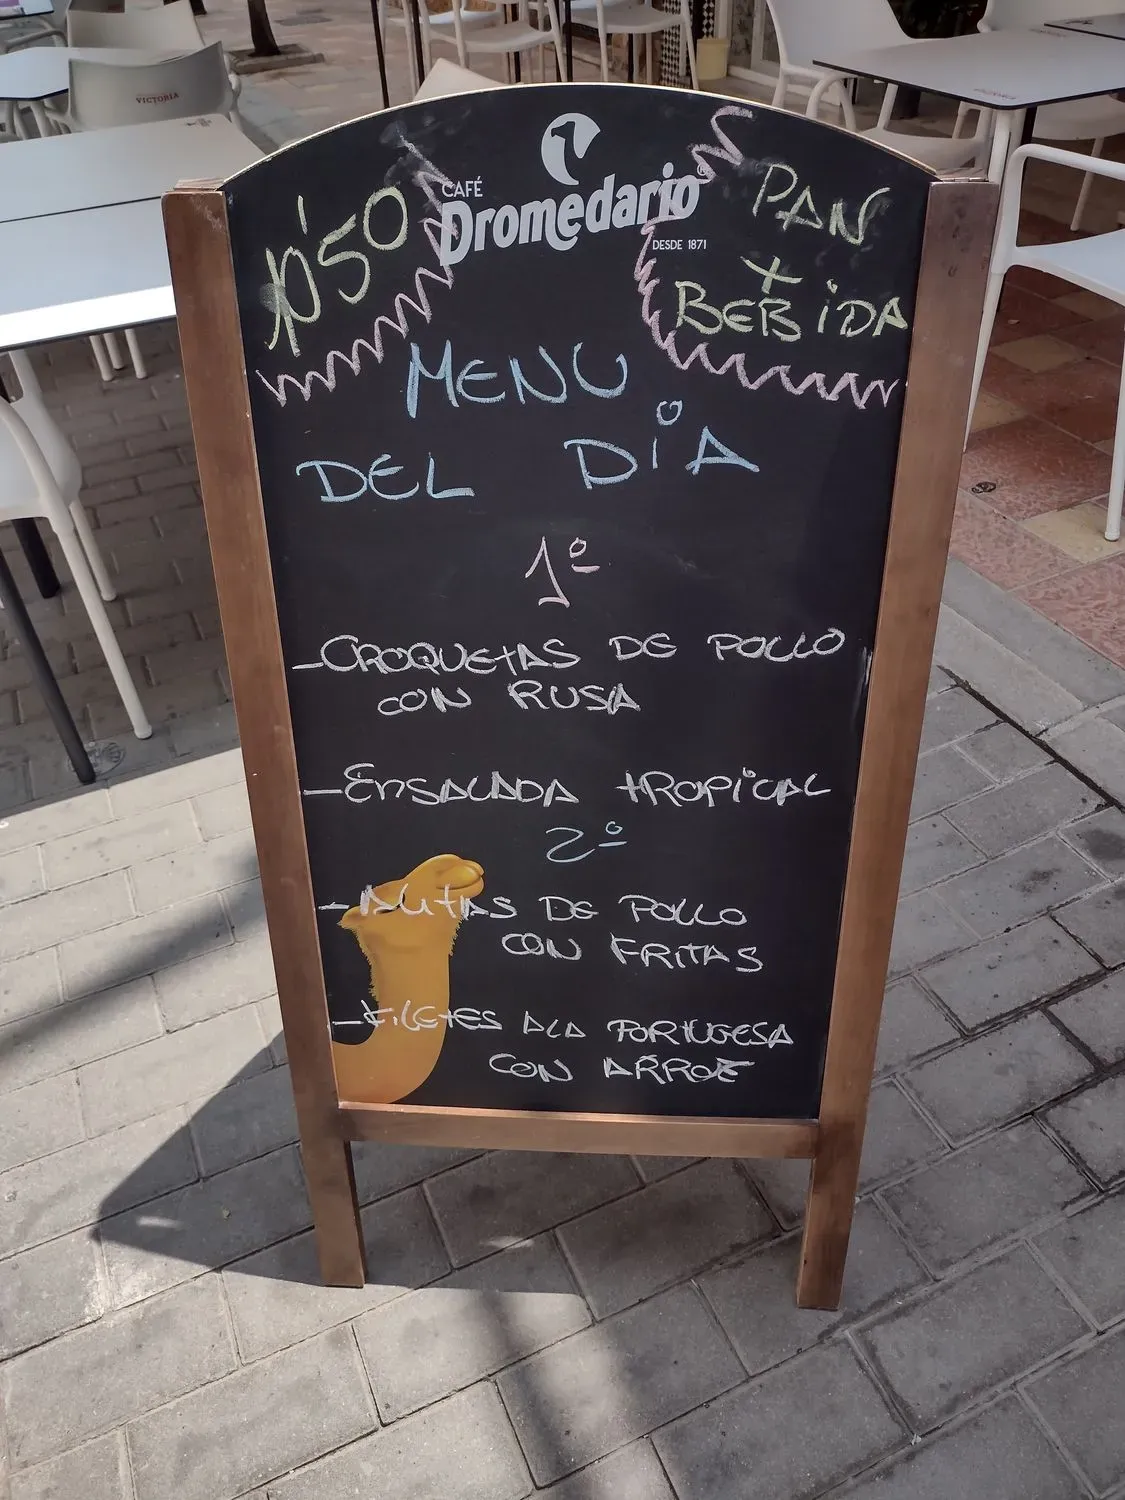 CAFÉ
Dromedario
DESDE 1871
PAN
+
BEBiDA
MENU
DEL DiA
1º
-CROQUETAS DE POLLO
CON RUSA
-ENSALADA TROPiCAL
2º
-ALITAS DE POLLO
CON FRITAS
-FILETES ALA PORTUGESA
CON ARROZ
VICTORIA